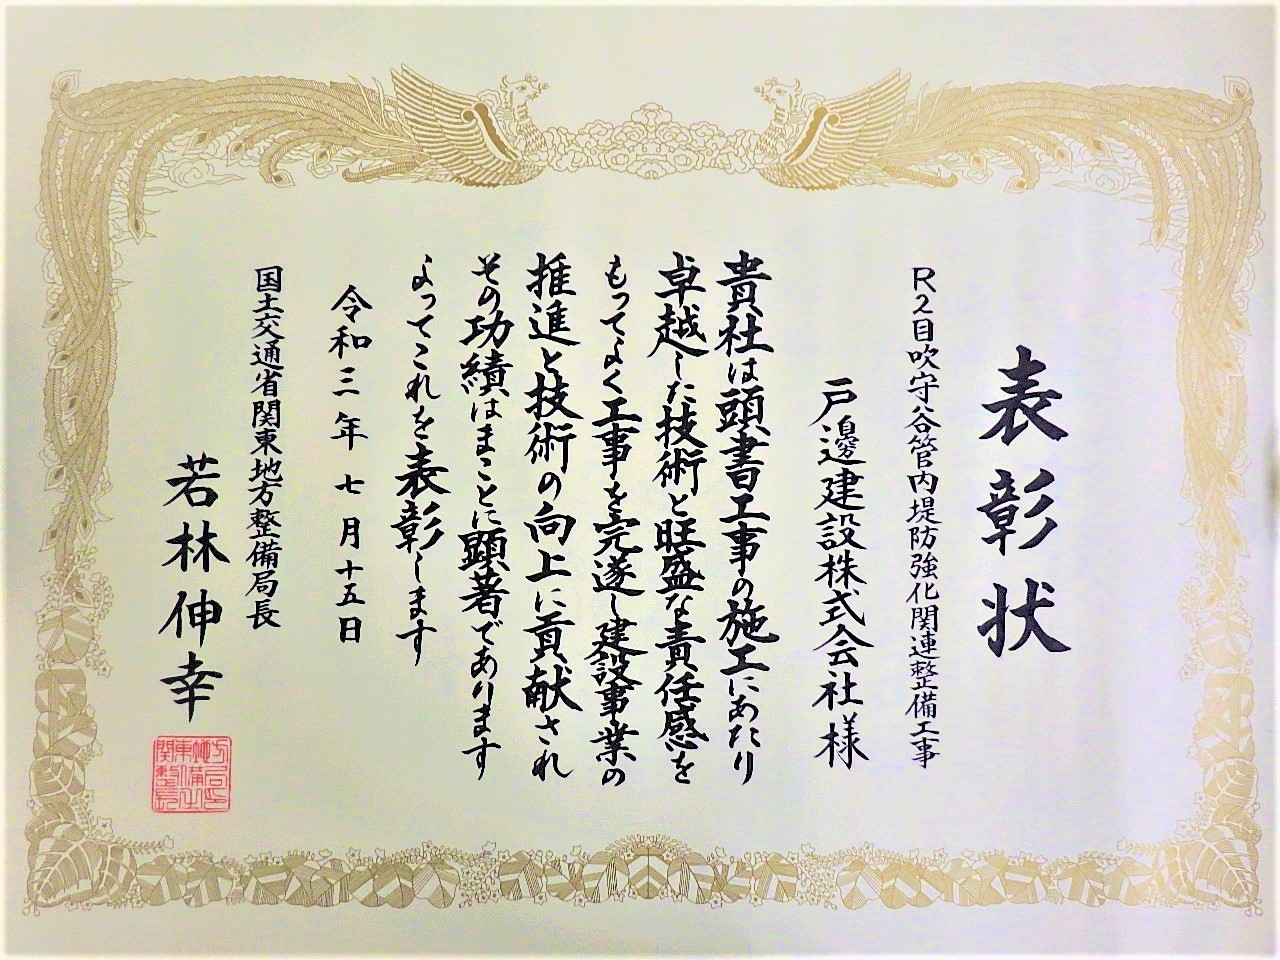 表彰状
R2目吹守谷管内堤防強化関連整備工事
戸邊建設株式会社様
貴社は頭書工事の施工にあたり
卓越した技術と旺盛な責任感を
もってよく工事を完遂し建設事業の
推進と技術の向上に貢献され
その功績はまことに顕著であります
よってこれを表彰します
令和三年七月十五日
国土交通省関東地方整備局長
若林伸幸